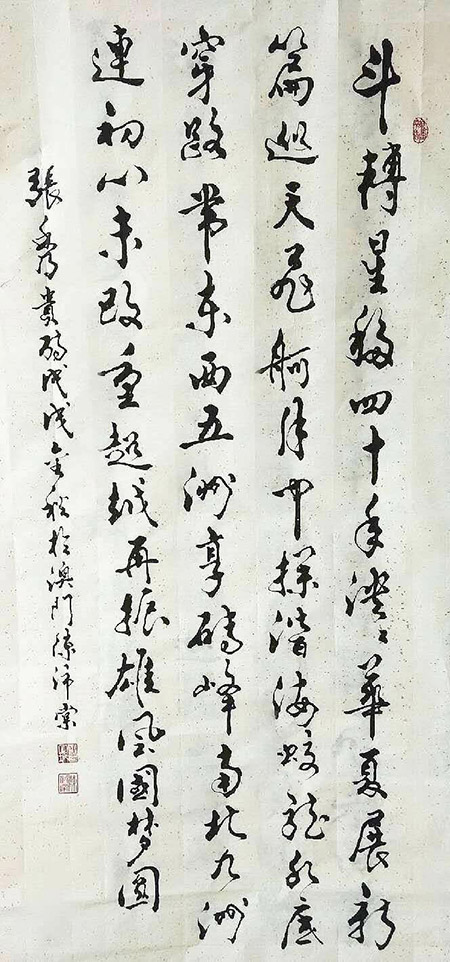 斗轉星移四十年泱〻華夏展新
篇巡天飛舸月中探潛海蛟龍水底
穿路帶东西五洲享磚峰南北九洲
連初心未改重超越再振雄風國梦圓
張秀貴戊戌金秋於澳門棠